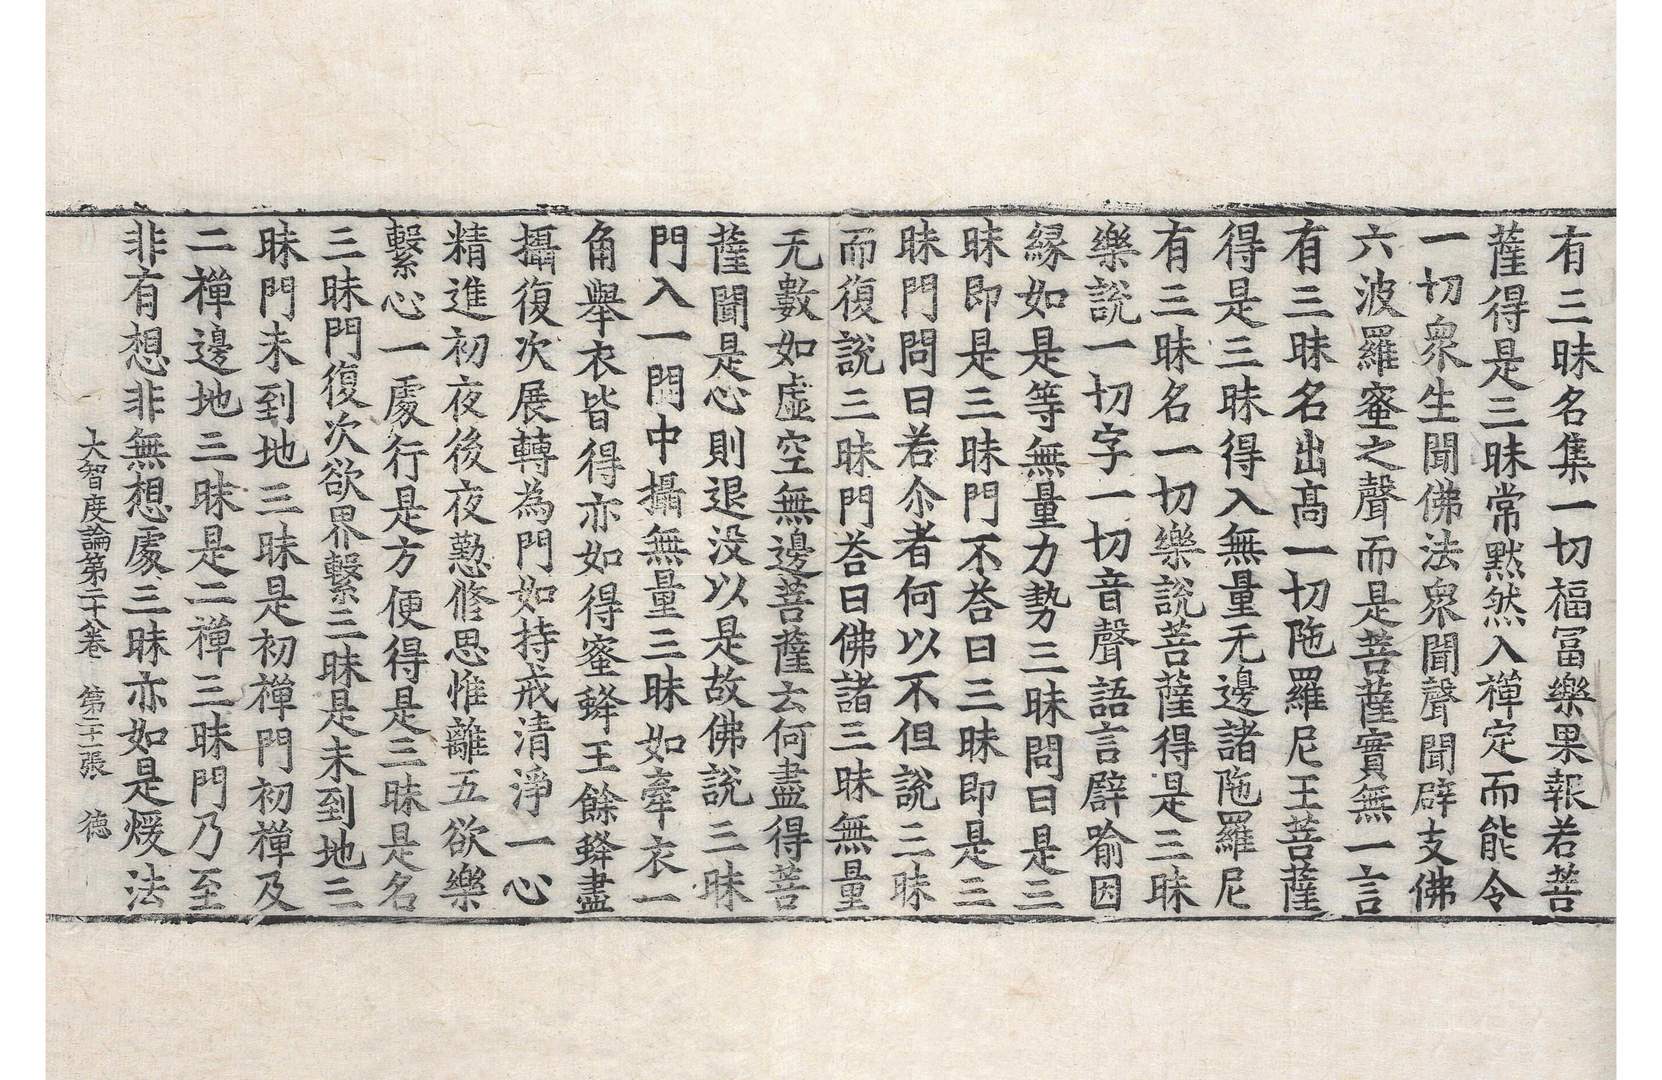 有三昧名集一切福冨樂果報若菩
薩得是三昧常黙然入禪定而能令
一切衆生聞佛法衆聞聲聞辟支佛
六波羅蜜之聲而是菩薩實無一言
有三昧名出髙一切陁羅尼王菩薩
得是三昧得入無量无邊諸陁羅尼
有三昧名一切樂説菩薩得是三昧
樂説一切字一切音聲語言譬喻因
縁如是等無量力勢三昧問曰是三
昧即是三昧門不荅曰三昧即是三
昧門問曰若尒者何以不但説三昧
而復説三昧門荅曰佛諸三昧無量
无數如虛空無邊菩薩云何盡得菩
薩聞是心則退没以是故佛説三昧
門入一門中攝無量三昧如牽衣一
角舉衣皆得亦如得蜜蜂王餘蜂盡
攝復次展轉為門如持戒清淨一心
精進初夜後夜懃修思惟離五欲樂
繫心一處行是方便得是三昧是名
三昧門復次欲界繫三昧是未到地三
昧門未到地三昧是初禪門初禪及
二禪邊地三昧是二禪三昧門乃至
非有想非非無想處三昧亦如是煖法
大智度論第二十八卷　第二十一張　徳